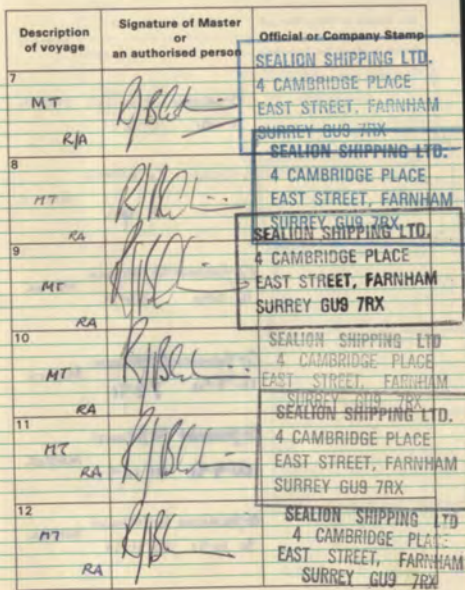 Description of voyage
Signature of Master or an authorised person
Official or Company Stamp
7
MT
R/A
SEALION SHIPPING LTD.
4 CAMBRIDGE PLACE
EAST STREET, FARNHAM
SURREY GU9 7RX
8
MT
RA
SEALION SHIPPING LTD.
4 CAMBRIDGE PLACE
EAST STREET, FARNHAM
SURREY GU9 7RX
9
MT
RA
SEALION SHIPPING LTD.
4 CAMBRIDGE PLACE
EAST STREET, FARNHAM
SURREY GU9 7RX
10
MT
RA
SEALION SHIPPING LTD
4 CAMBRIDGE PLACE
EAST STREET, FARNHAM
SURREY GU9 7RX
11
MT
RA
SEALION SHIPPING LTD.
4 CAMBRIDGE PLACE
EAST STREET, FARNHAM
SURREY GU9 7RX
12
MT
RA
SEALION SHIPPING LTD
4 CAMBRIDGE PLACE
EAST STREET, FARNHAM
SURREY GU9 7RX